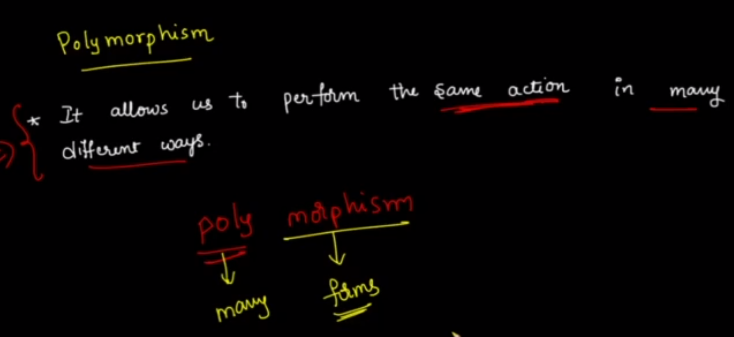 Polymorphism
* It allows us to perform the same action in many
different ways.
poly morphism
many forms